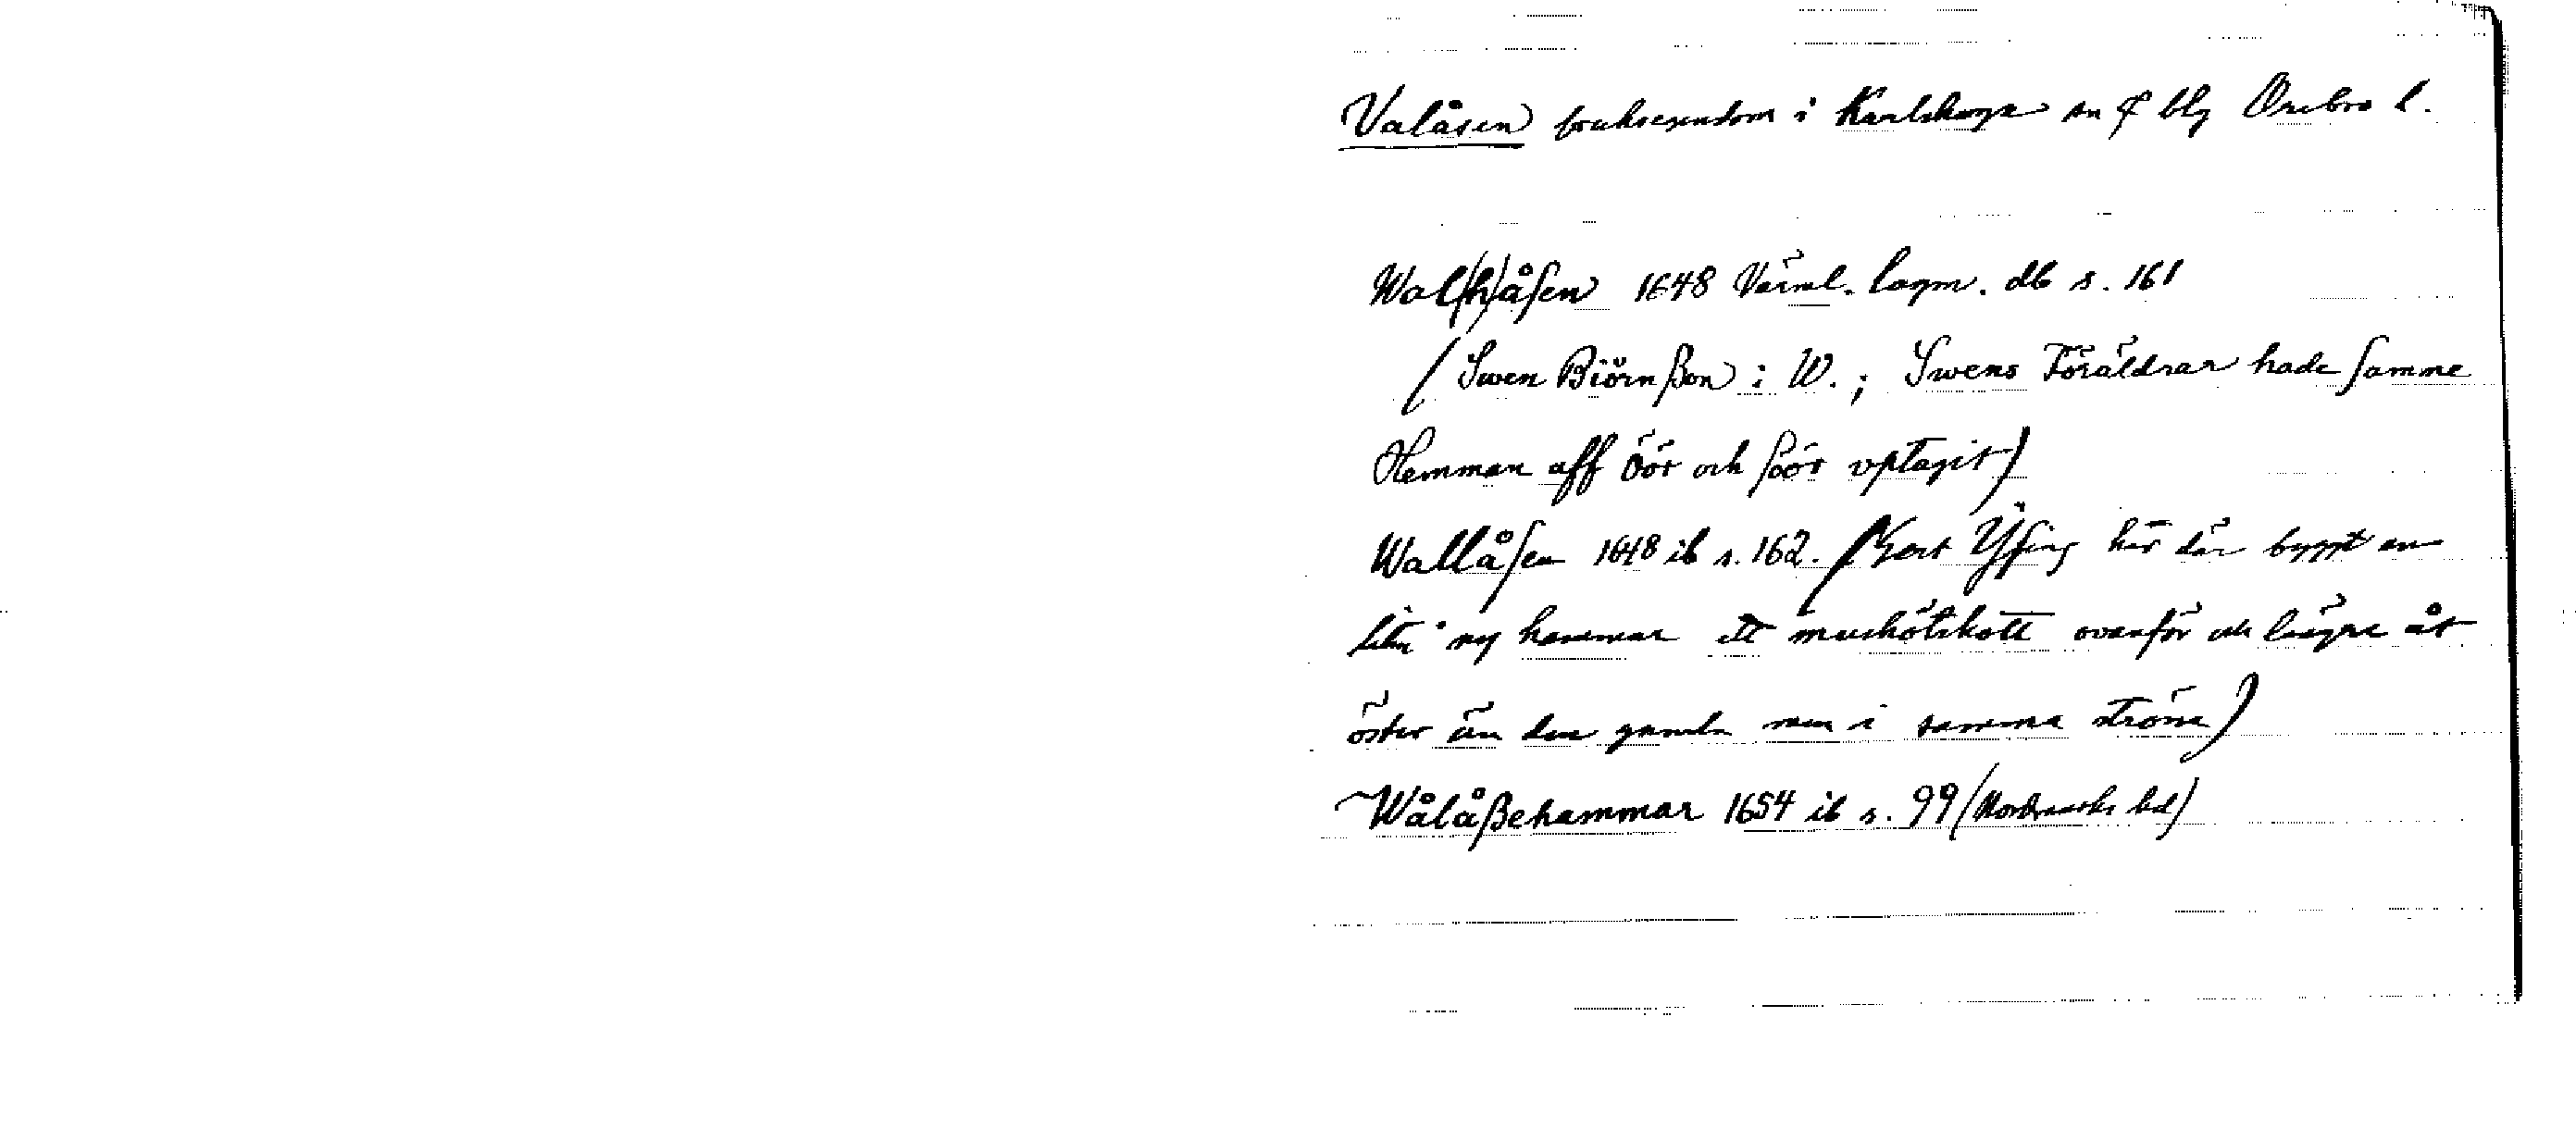 Valåsen bruksegendom i Karlskoga sn & blg Örebro l.
Wal(h)åſen 1648 Värml. lagm. db s. 161
(Swen Biörnßon i W.; Swens Föräldrar hade ſamme
Hemman aff öör och ſöör vptagit)
Wallåſen 1648 ib s. 162. (Gert Ÿſing har där byggt en
liten ny hammar ett musköttskott ovanför och längre åt
öster än den gamla men i samma ström)
Wålåßehammar 1654 ib s. 99 (Nordmarks hd)